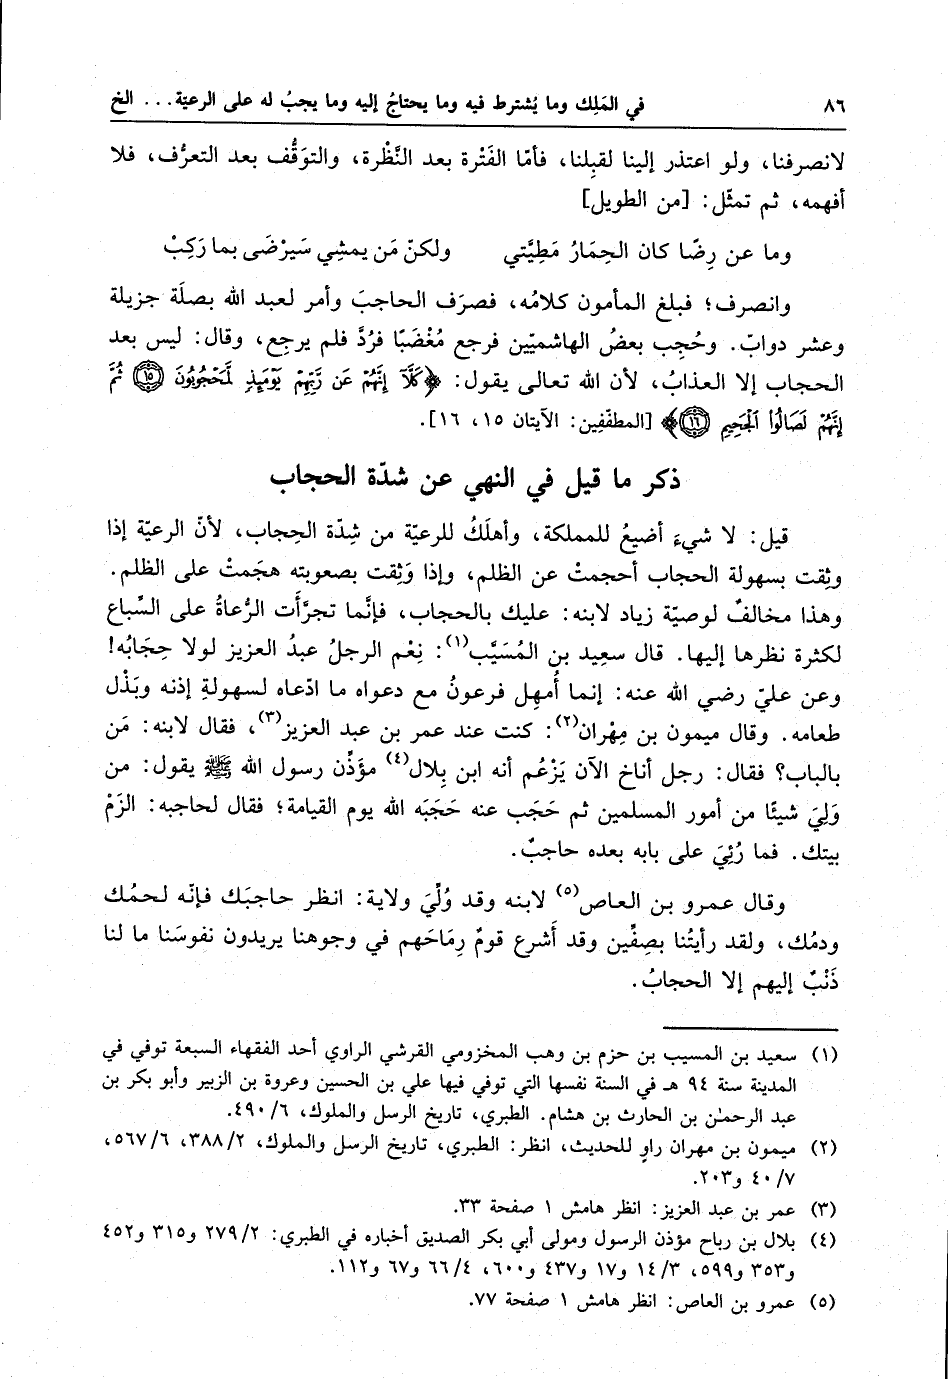 ٨٦ في المَلِك وما يُشترط فيه وما يحتاجُ إليه وما يجبُ له على الرعيّة... الخ
لانصرفنا، ولو اعتذر إلينا لقبِلنا، فأمّا الفَتْرة بعد النَّظْرة، والتوَقُّف بعد التعرُّف، فلا
أفهمه، ثم تمثّل: [من الطويل]
وما عن رِضًا كان الحِمَارُ مَطِيَّتي ولكنّ مَن يمشِي سَيرْضَى بما رَكِبْ
وانصرف؛ فبلغ المأمون كلامُه، فصرَف الحاجبَ وأمر لعبد الله بصلَة جزيلة
وعشر دوابّ. وحُجِب بعضُ الهاشميّين فرجع مُغْضَبًا فرُدَّ فلم يرجِع، وقال: ليس بعد
الحجاب إلا العذابُ، لأن الله تعالى يقول: ﴿كَلَّآ إِنَّهُمْ عَن رَّبِّهِمْ يَوْمَئِذٍ لَّمَحْجُوبُونَ ١٥ ثُمَّ
إِنَّهُمْ لَصَالُوا۟ ٱلْجَحِيمِ ١٦﴾ [المطفّفِين: الآيتان ١٥، ١٦].
ذكر ما قيل في النهي عن شدّة الحجاب
قيل: لا شيءَ أضيعُ للمملكة، وأهلَكُ للرعيّة من شِدّة الحِجاب، لأنّ الرعيّة إذا
وثِقت بسهولة الحجاب أحجمتْ عن الظلم، وإذا وَثِقت بصعوبته هجَمتْ على الظلم.
وهذا مخالفٌ لوصيّة زياد لابنه: عليك بالحجاب، فإنَّما تجرَّأَت الرُّعاةُ على السِّباع
لكثرة نظرها إليها. قال سعِيد بن المُسَيَّب(١): نِعْم الرجلُ عبدُ العزيز لولا حِجَابُه!
وعن عليّ رضي الله عنه: إنما أُمهِل فرعونُ مع دعواه ما ادّعاه لسهولةِ إذنه وبَذْل
طعامه. وقال ميمون بن مِهْران(٢): كنت عند عمر بن عبد العزيز(٣)، فقال لابنه: مَن
بالباب؟ فقال: رجل أناخ الآن يَزْعُم أنه ابن بِلال(٤) مؤذّن رسول الله ﷺ يقول: من
وَلِيَ شيئًا من أمور المسلمين ثم حَجَب عنه حَجَبَه الله يوم القيامة؛ فقال لحاجبه: الزَمْ
بيتك. فما رُئِيَ على بابه بعده حاجبٌ.
وقال عمرو بن العاص(٥) لابنه وقد وُلِّيَ ولاية: انظر حاجبَك فإنّه لحمُك
ودمُك، ولقد رأيتُنا بصِفِّين وقد أَشرع قومٌ رِمَاحَهم في وجوهنا يريدون نفوسَنا ما لنا
ذَنْبٌ إليهم إلا الحجابُ.
(١) سعيد بن المسيب بن حزم بن وهب المخزومي القرشي الراوي أحد الفقهاء السبعة توفي في
المدينة سنة ٩٤ هـ في السنة نفسها التي توفي فيها علي بن الحسين وعروة بن الزبير وأبو بكر بن
عبد الرحمٰن بن الحارث بن هشام. الطبري، تاريخ الرسل والملوك، ٦/ ٤٩٠.
(٢) ميمون بن مهران راوٍ للحديث، انظر: الطبري، تاريخ الرسل والملوك، ٢/ ٣٨٨، ٦/ ٥٦٧،
٧/ ٤٠ و٢٠٣.
(٣) عمر بن عبد العزيز: انظر هامش ١ صفحة ٣٣.
(٤) بلال بن رباح مؤذن الرسول ومولى أبي بكر الصديق أخباره في الطبري: ٢/ ٢٧٩ و٣١٥ و٤٥٢
و٣٥٣ و٥٩٩، ٣/ ١٤ و١٧ و٤٣٧ و٦٠٠، ٤/ ٦٦ و٦٧ و١١٢.
(٥) عمرو بن العاص: انظر هامش ١ صفحة ٧٧.